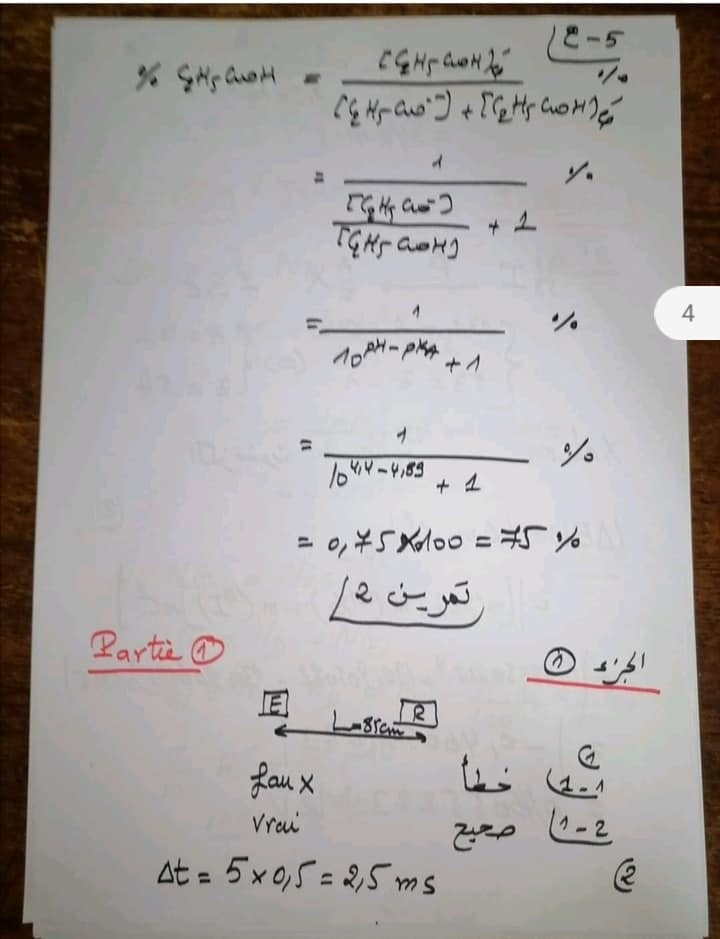 2-5)
% C₂H₅COOH = [C₂H₅COOH]éq / ([C₂H₅COO⁻] + [C₂H₅COOH]éq) %
= 1 / ([C₂H₅COO⁻] / [C₂H₅COOH] + 1) %
= 1 / (10^(pH-pKA) + 1) %
4
= 1 / (10^(4,4-4,89) + 1) %
= 0,75 x 100 = 75 %
تمرين 2
Partie ① الجزء ①
E R
L=85cm
1)
faux خطأ 1-1)
Vrai صحيح 1-2)
Δt = 5 x 0,5 = 2,5 ms 2)